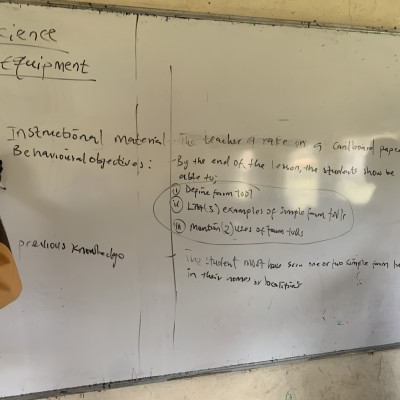 cience
Equipment
Instructional material The teacher a rake on a cardboard pape
Behavioural objectives: By the end of the lesson, the students show be
able to;
(i) Define farm tool
(ii) List (3) examples of simple farm tools
(iii) Mention (2) uses of farm tools
previous knowledge The student must have seen one or two simple farm
in their homes or localities